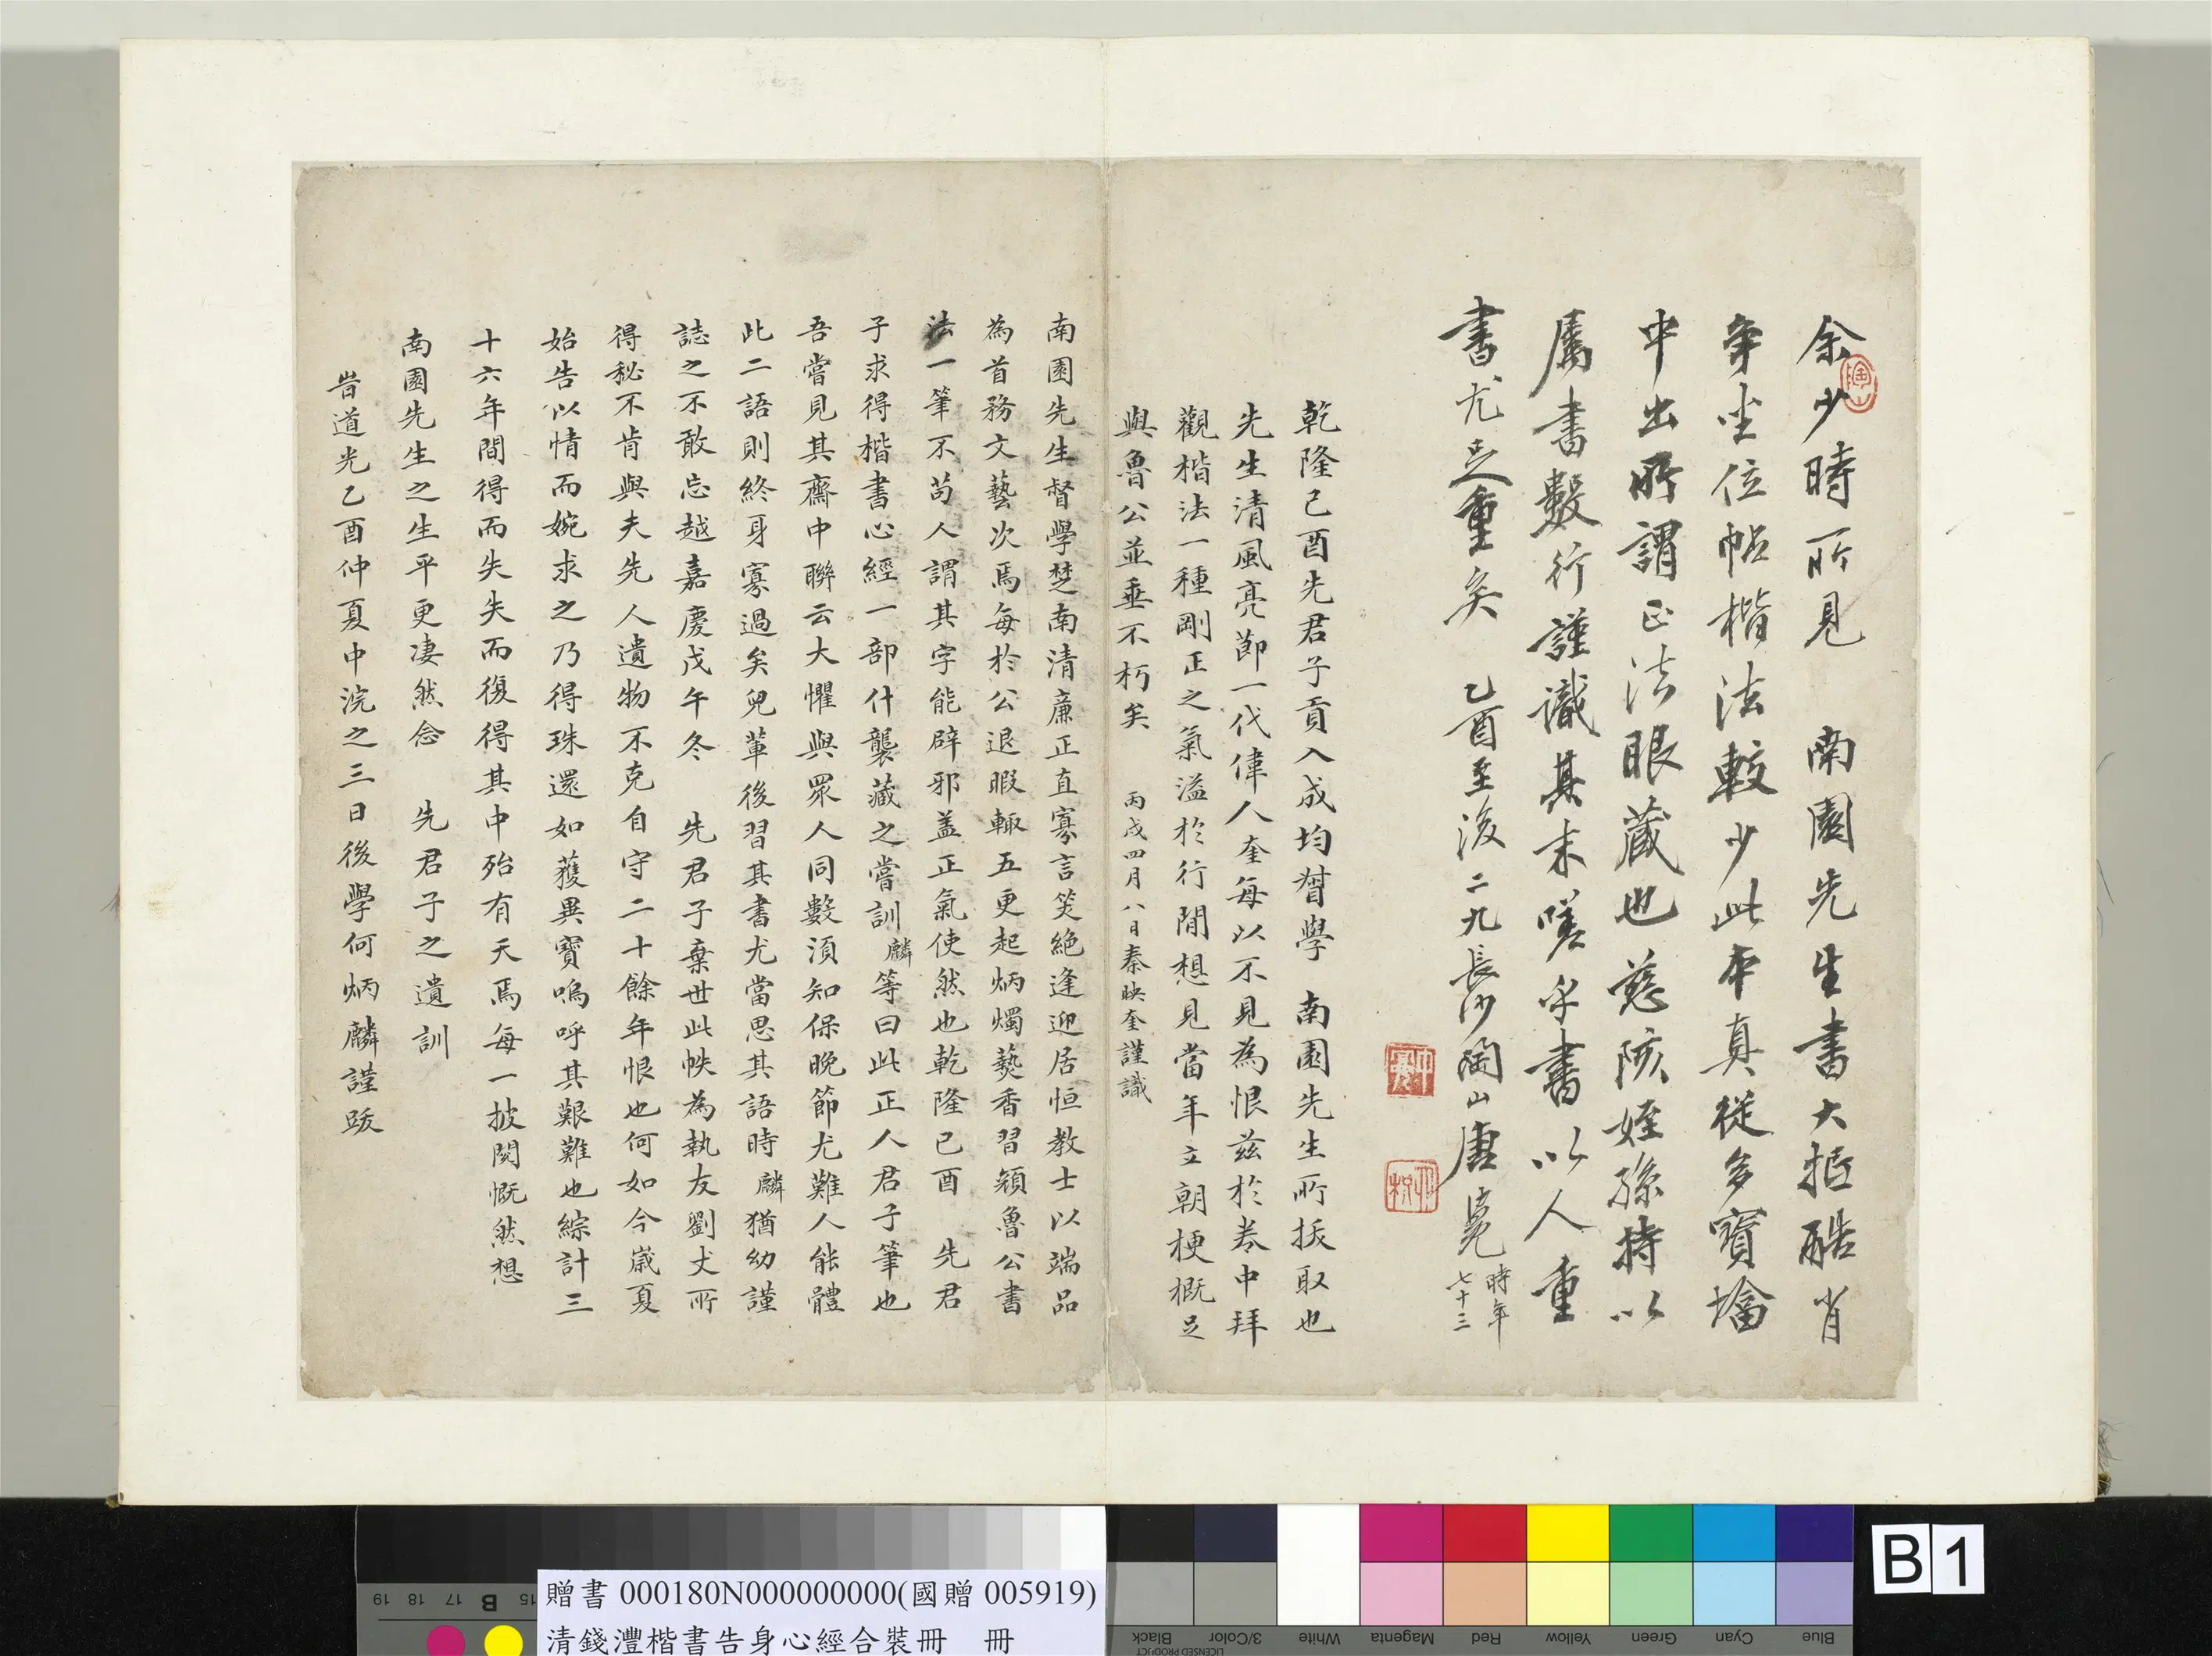 余少時所見　南園先生書大抵酷肖
爭坐位帖楷法較少此本真從多寶塔
中出所謂正法眼藏也慈陔姪孫持以
屬書數行謹識其末嗟乎書以人重
書尤足重矣　乙酉至後二九長沙陶山唐冕時年七十三
乾隆己酉先君子貢入成均督學　南園先生所拔取也
先生清風亮節一代偉人奎每以不見為恨茲於卷中拜
觀楷法一種剛正之氣溢於行間想見當年立朝梗概足
與魯公並垂不朽矣　丙戌四月八日秦映奎謹識
南園先生督學楚南清廉正直寡言笑絕逢迎居恒教士以端品
為首務文藝次焉每於公退暇輙五更起炳燭爇香習顏魯公書
法一筆不苟人謂其字能辟邪盖正氣使然也乾隆己酉　先君
子求得楷書心經一部什襲藏之嘗訓麟等曰此正人君子筆也
吾嘗見其齋中聯云大懼與眾人同數須知保晚節尤難人能體
此二語則終身寡過矣兒輩後習其書尤當思其語時麟猶幼謹
誌之不敢忘越嘉慶戊午冬　先君子棄世此帙為執友劉丈所
得秘不肯與夫先人遺物不克自守二十餘年恨也何如今歲夏
始告以情而婉求之乃得珠還如獲異寶嗚呼其艱難也綜計三
十六年間得而失失而復得其中殆有天焉每一披閱慨然想
南園先生之生平更淒然念　先君子之遺訓
旹道光乙酉仲夏中浣之三日後學何炳麟謹跋
贈書 000180N000000000(國贈 005919)
清錢灃楷書告身心經合裝冊　冊
B 1
19 18 17 B 15
Black 3/Color White Magenta Red Yellow Green Cyan Blue
LICENSED PRODUCT